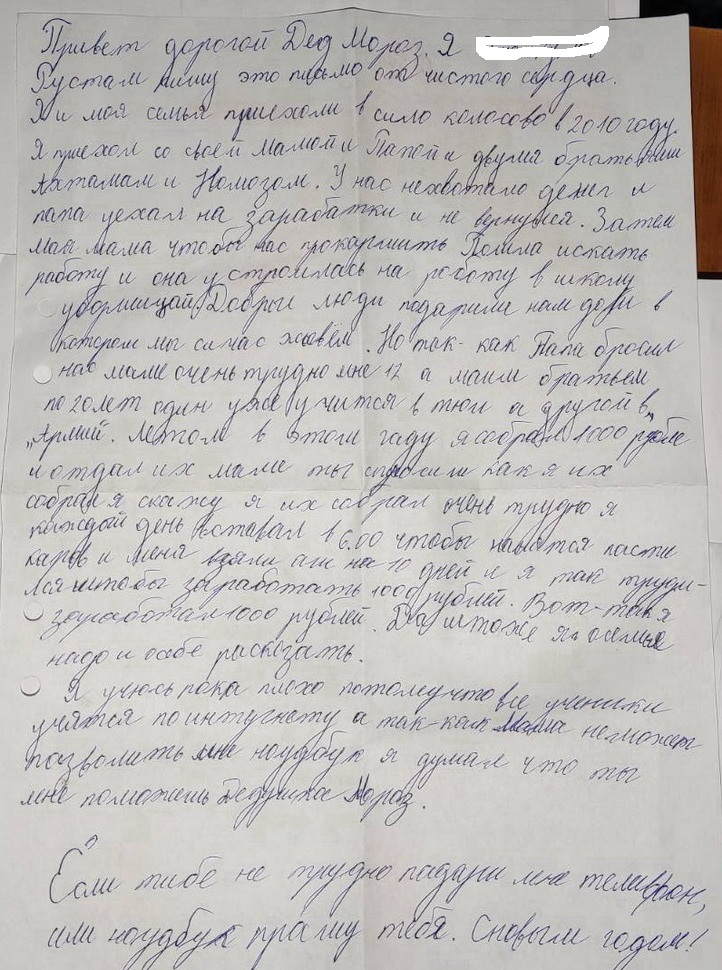 Привет дорогой Дед Мороз. Я
Рустам пишу это письмо от чистого сердца.
Я и моя семья приехали в сило колосово в 2010 году.
Я приехал со своей мамой и Папой и двумя братьями
Ахтамам и Номозом. У нас нехватало денег и
папа уехал на зарабатки и не вернулся. Затем
мая мама чтобы нас прокармить Пошла искать
работу и она устроилась на роботу в школу
уборщицай. Добрыи люди подарили нам дом в
котором мы сичас живём. Но так-как Папа бросил
нас маме очень трудно мне 12 а маим братьем
по 20 лет один уже учится в а другой в
"Армий. Летом в этом гаду я собрал 1000 рубле
и отдал их маме ты спросиш как я их
собрал я скажу я их собрал очень трудно я
каждый день вставал в 6.00 чтобы пасти
каров и меня взяли аш на 10 дней и я так труди-
лся штобы заработать 1000 рублей. Вот-так я
заработал 1000 рублей. Да што же я о семье
надо и себе раскозать.
Я учюсь пока плохо потомучто все ученики
учятся по интугнету а так-как Мама неможет
пазволить мне ноудбук я думал что ты
мне поможешь Дедушка Мороз.
Если тибе не трудно падари мне телифон,
или ноудбук прашу тебя. Сновым годом!